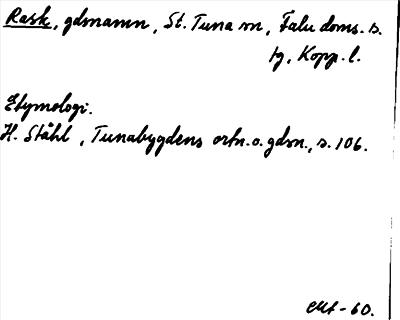 Rask, gdsnamn, St. Tuna sn, Falu doms. s.
tg, Kopp. l.
Etymologi.
H. Ståhl, Tunabygdens ortn. o. gdsn., s. 106.
-60.